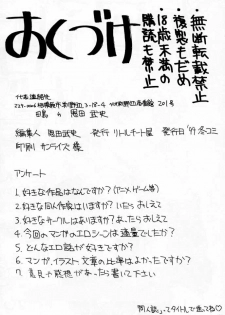 おくづけ
・無断転載禁止
・複製もだめ
・18歳未満の
購読も禁止
代表連絡先
201号
恩田 武史
編集人 恩田武史 発行 リトルチート屋 発行日 '99 冬コミ
印刷 サンライズ
アンケート
1. 好きな作品はなんですか?(アニメ・ゲーム等)
2. 好きな同人作家はいますか?いたらおしえて
3. 好きなサークルはありますか?あったらおしえて
4. 今回のマンガのエロシーンは適量でしたか?
5. どんなエロ話が好きですか?
6. マンガ、イラスト、文章の比率はよかったですか?
7. 意見や感想があったら書いて下さい